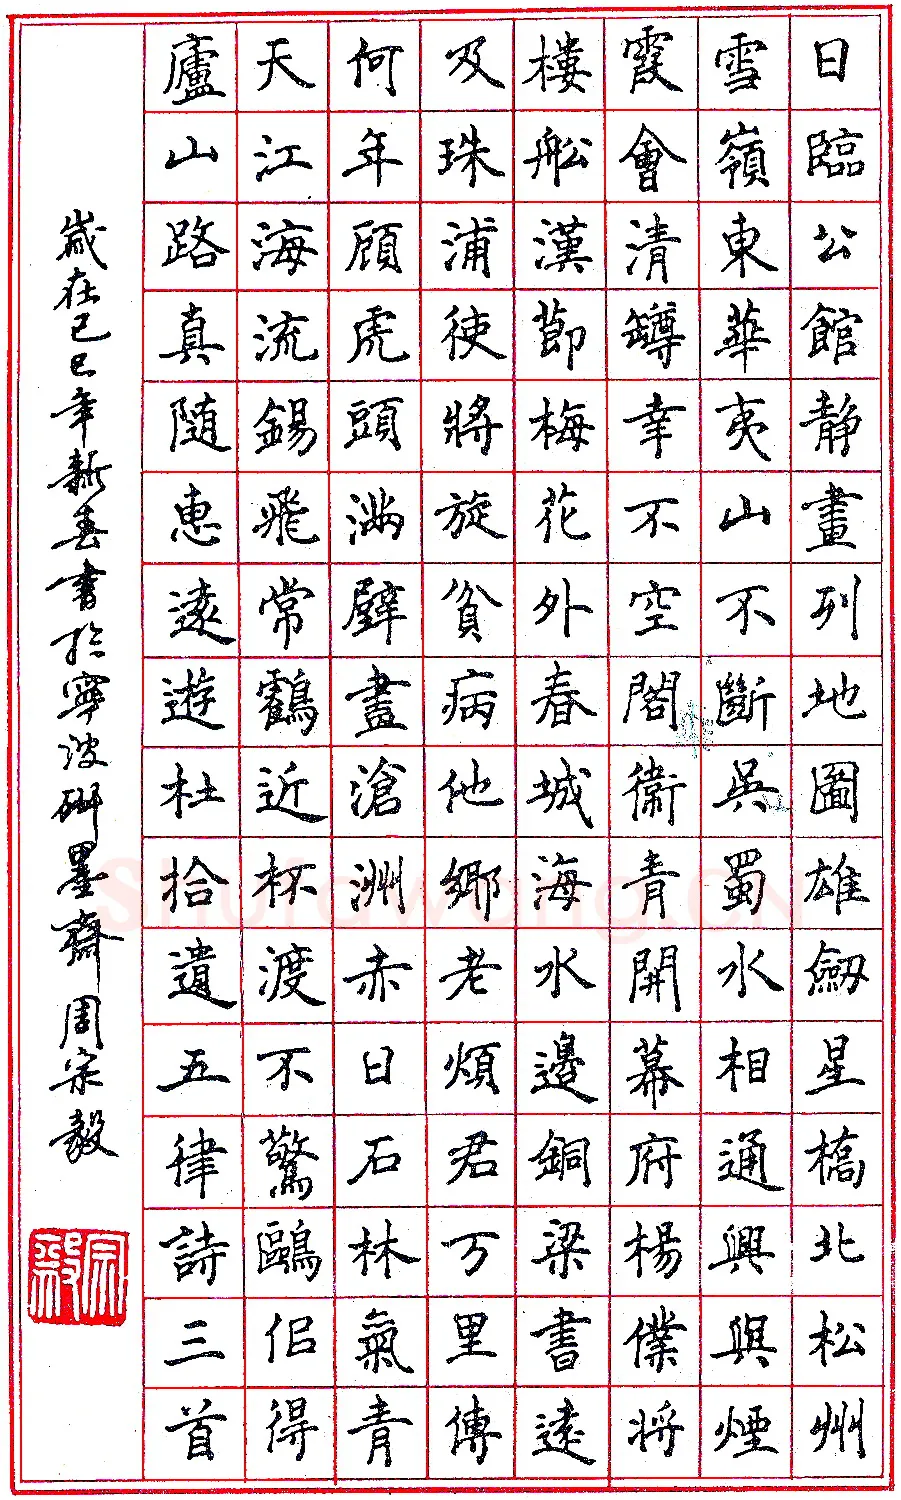 日臨公館静畫列地圖雄劔星橋北松州
雪嶺東華夷山不斷吳蜀水相通興與煙
霞會清罇幸不空閣衛青開幕府楊僕将
樓船漢節梅花外春城海水邊銅梁書遠
及珠浦使將旋貧病他鄉老煩君万里傳
何年顧虎頭滿壁畫滄洲赤日石林氣青
天江海流錫飛常鶴近杯渡不驚鷗佀得
廬山路真随惠遠遊杜拾遺五律詩三首
歲在己巳年新春書於寧波研墨齋周宗毅
宗毅
Shufawang.CN